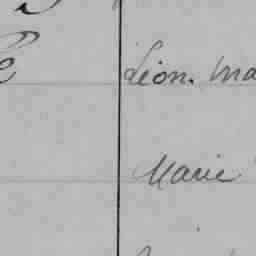 Léon. Ma
Marie